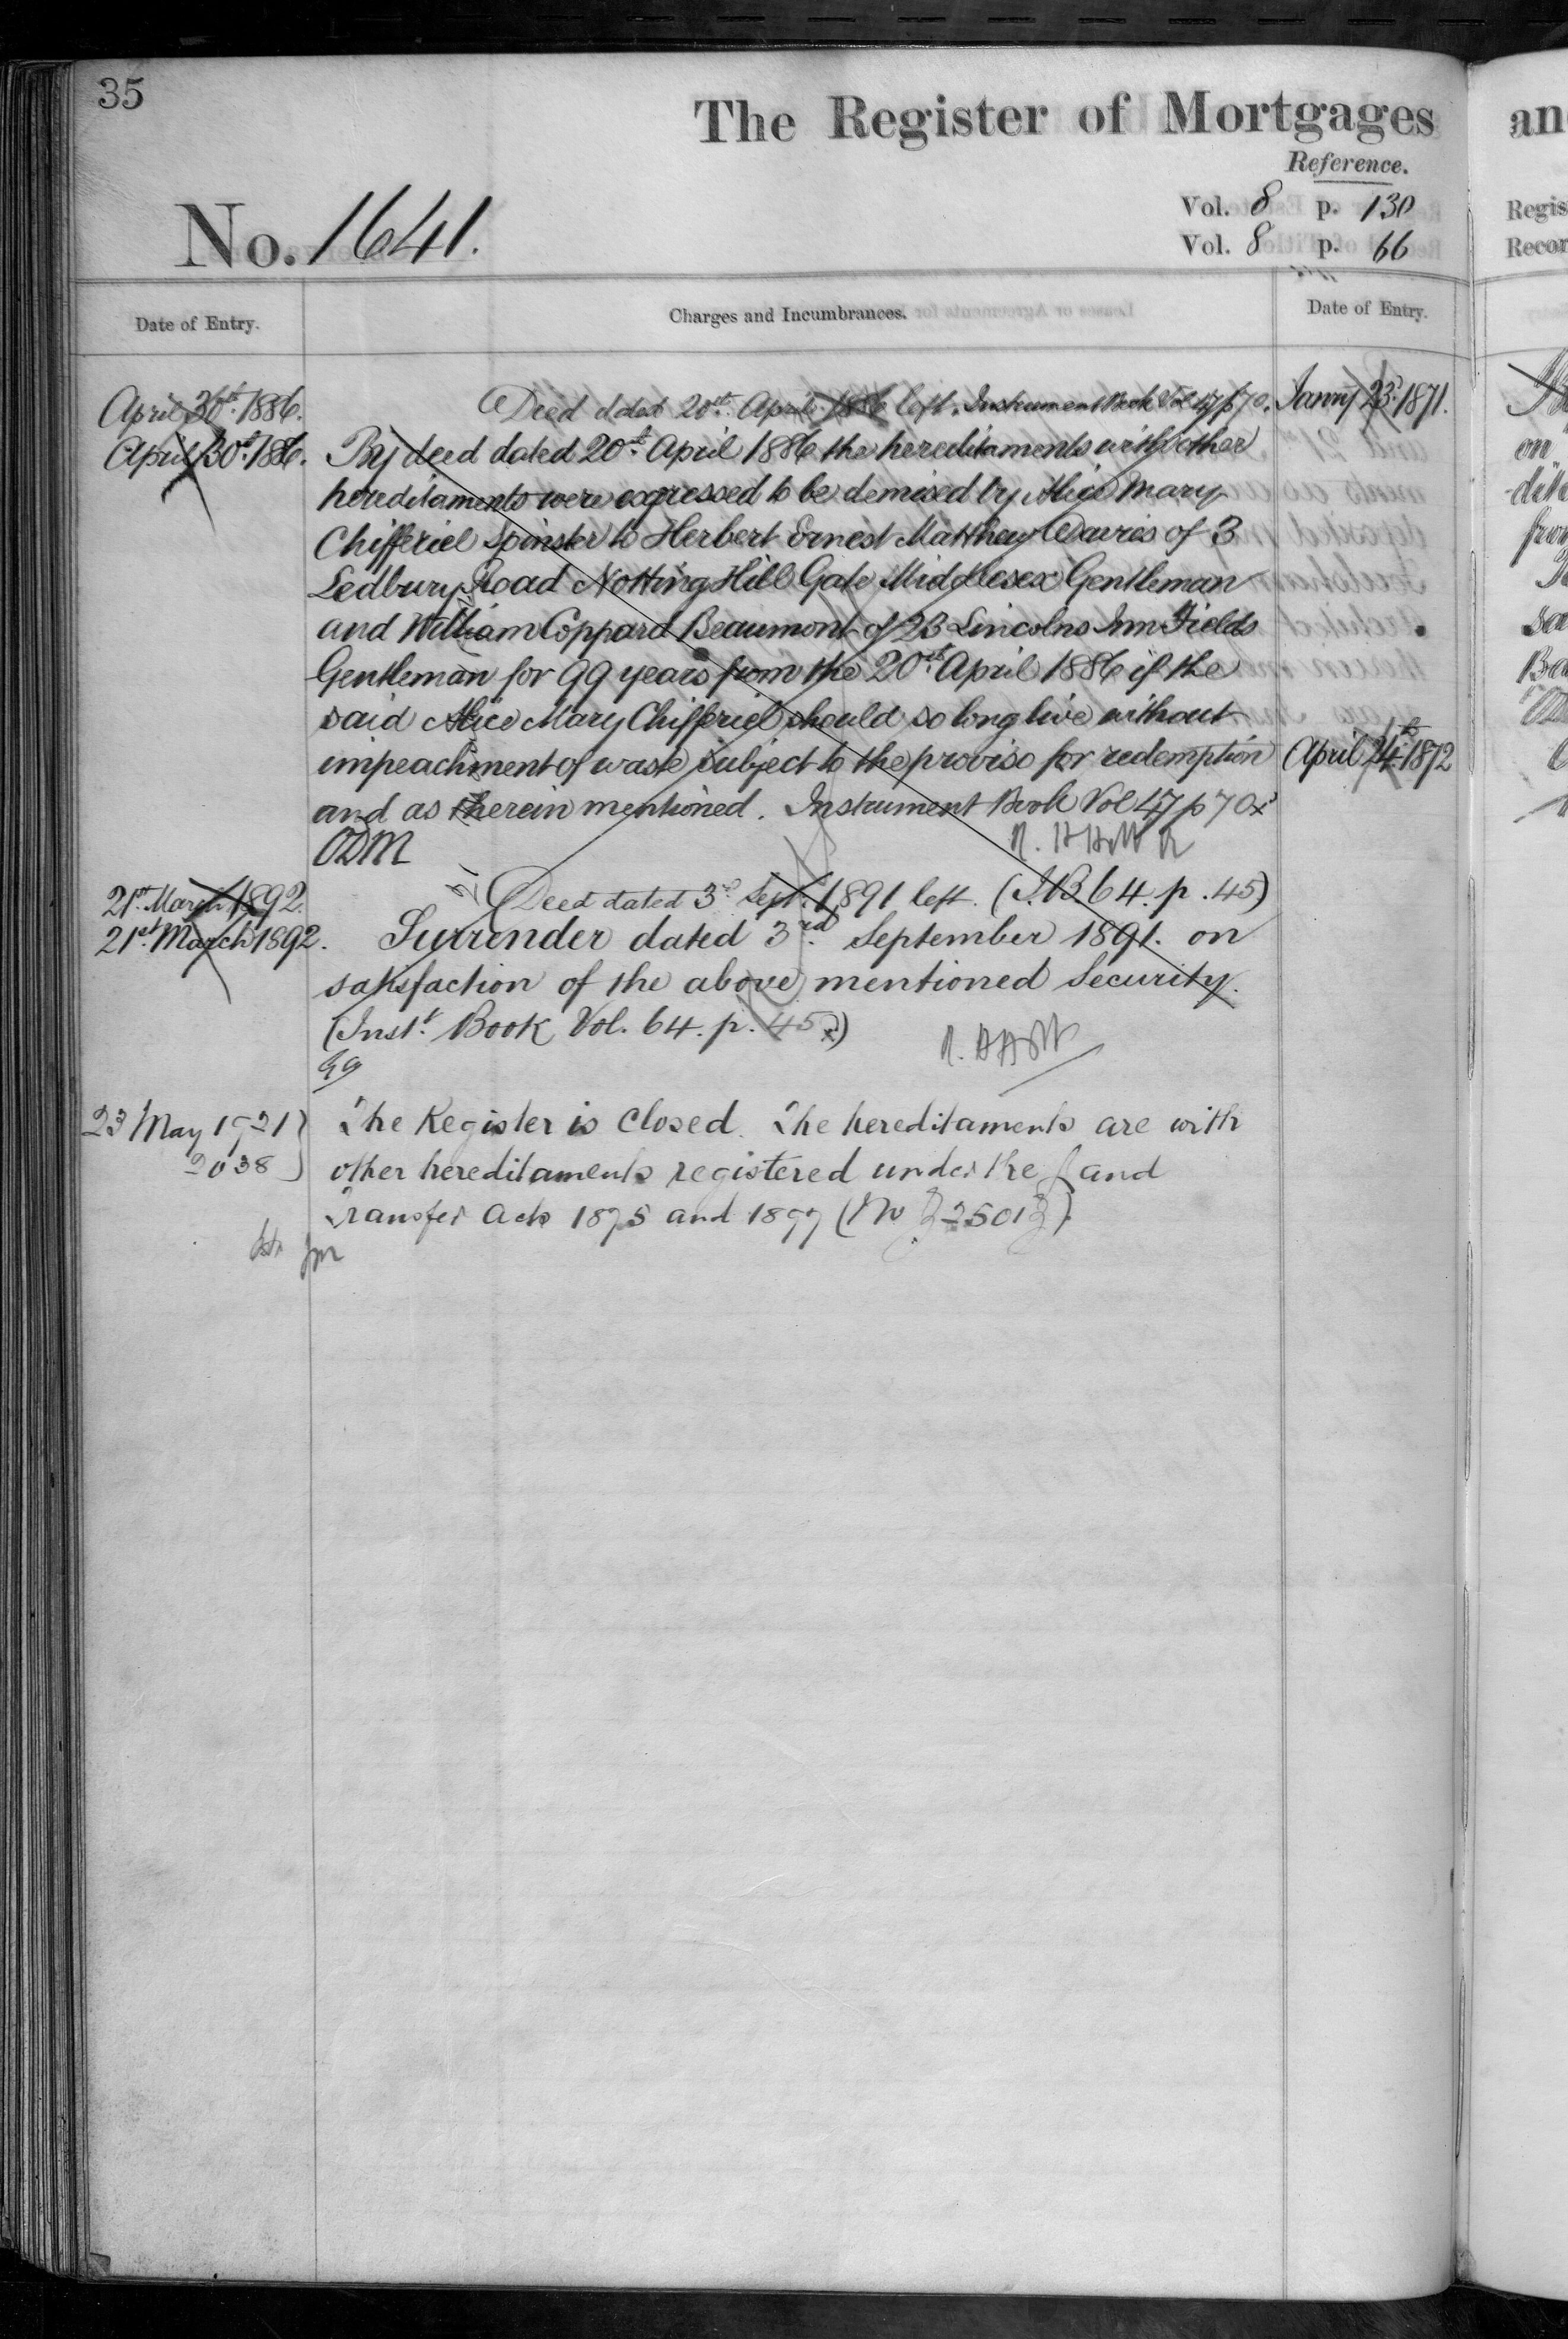 35
The Register of Mortgages
Reference.
Vol. 8 p. 130
Vol. 8 p. 66
No. 1641.
Date of Entry.
Charges and Incumbrances.
Date of Entry.
April 30th. 1886. Deed dated 20th. April 1886 left. Instrument Book Vol 47 p 70. Janry 23d. 1871.
April 30th. 1886. By deed dated 20th. April 1886 the hereditaments with other
hereditaments were expressed to be demised by Alice Mary
Chifferiel Spinster to Herbert Ernest Matthew Davies of 3
Ledbury Road Notting Hill Gate Middlesex Gentleman
and William Coppard Beaumont of 23 Lincolns Inn Fields
Gentleman for 99 years from the 20th. April 1886 if the
said Alice Mary Chifferiel should so long live without
impeachment of waste subject to the proviso for redemption April 24th. 1872
and as therein mentioned. Instrument Book Vol 47 p 70x
ODM
21st. March 1892. Deed dated 3d. Sept. 1891 left. (I.B 64. p. 45)
21st. March 1892. Surrender dated 3rd. September 1891. on
satisfaction of the above mentioned Security.
(Inst. Book Vol. 64. p. 45x)
23 May 1921 The Register is Closed. The hereditaments are with
2038 other hereditaments registered under the Land
Transfer Acts 1875 and 1897
an
Regis
Recor
on